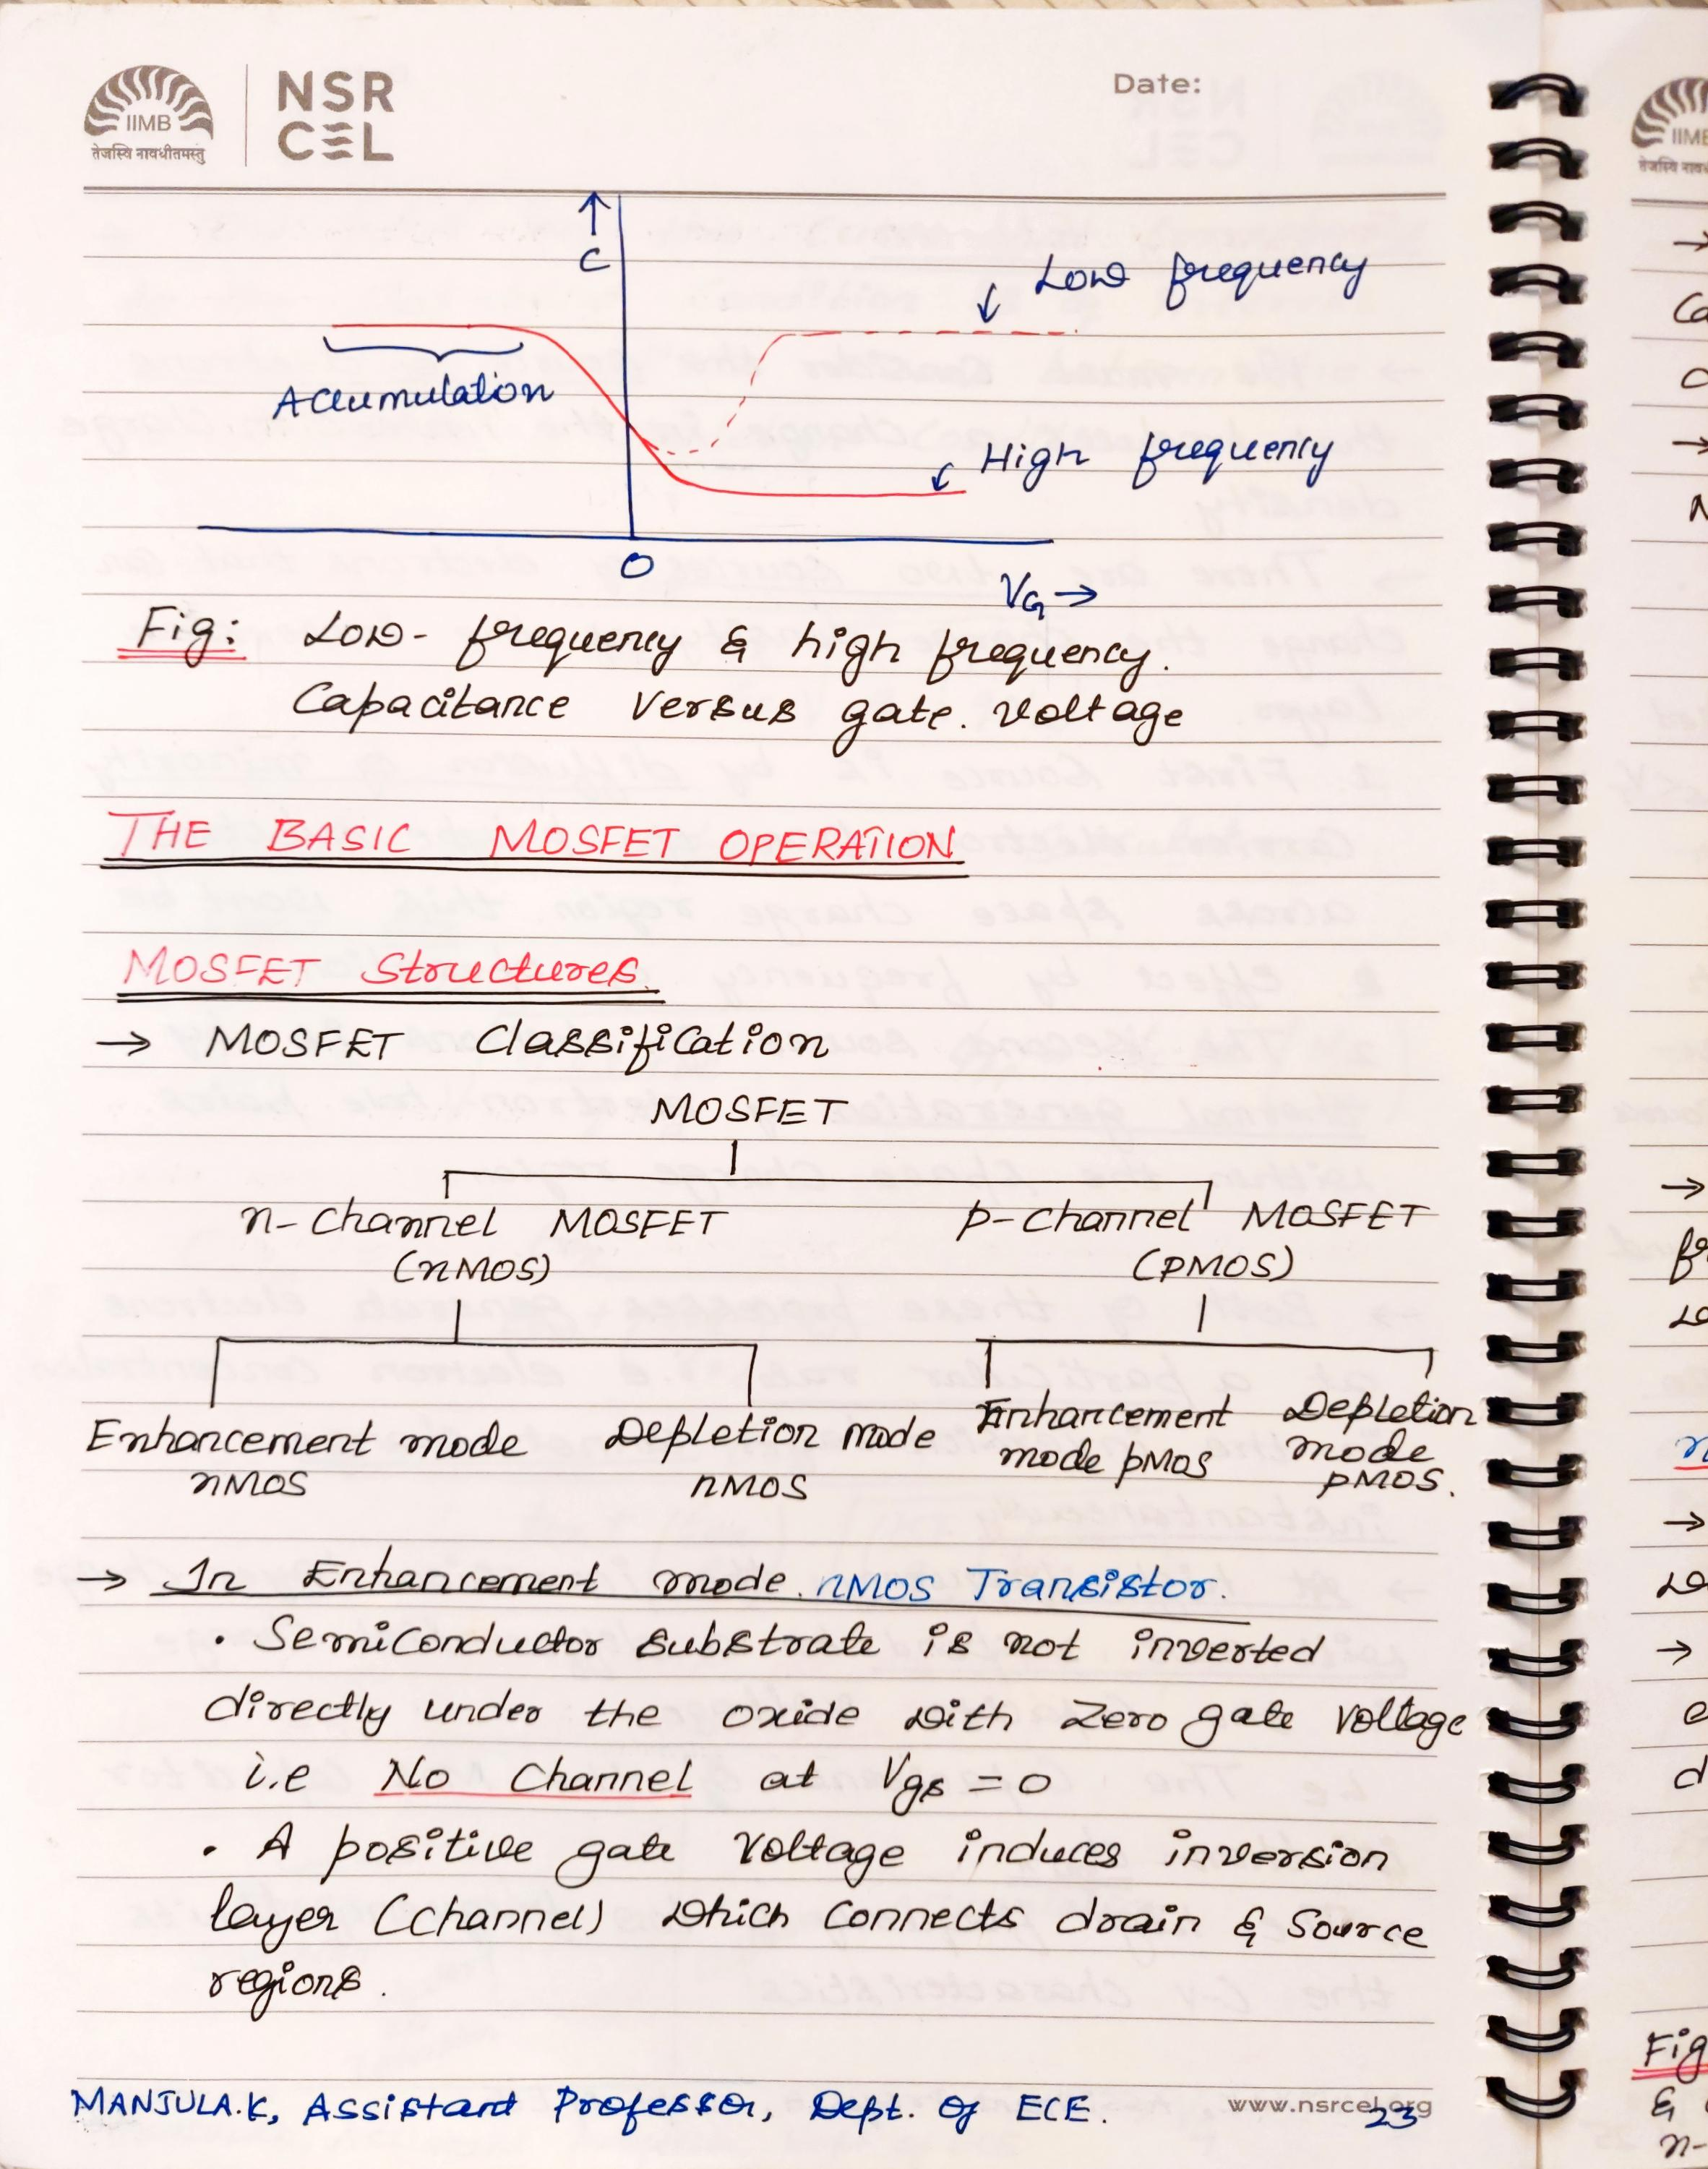 IIMB
तेजस्वि नावधीतमस्तु
NSR
CEL
Date:
↑
C
Low frequency
Accumulation
High frequency
0
VG →
Fig: Low- frequency & high frequency.
Capacitance versus gate. voltage
THE BASIC MOSFET OPERATION
MOSFET Structures.
→ MOSFET Classification
MOSFET
n-Channel MOSFET
(nMOS)
p-Channel MOSFET
(pMOS)
Enhancement mode
nMOS
Depletion mode
nMOS
Enhancement
mode pMOS
Depletion
mode
pMOS.
→ In Enhancement mode. nMOS Transistor.
• Semiconductor substrate is not inverted
directly under the oxide with Zero gate voltage
i.e No Channel at Vgs = 0
• A positive gate voltage induces inversion
layer (channel) which connects drain & source
regions.
MANJULA.K, Assistant Professor, Dept. of ECE.
www.nsrcel.org
23
Fig
&
n-